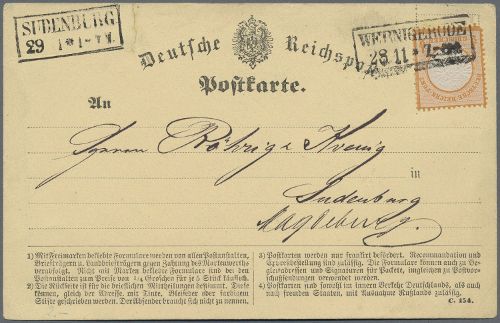 SUDENBURG
29 1 * 1-
WERNIGERODE
28 11 *
Deutsche Reichspost
Postkarte.
An
Herren Röhrig & Koenig
in
Sudenburg
Magdeburg
1) Mit Freimarken beklebte Formulare werden von allen Postanstalten,
Briefträgern u. Landbriefträgern gegen Zahlung des Markenwerths
verabfolgt. Nicht mit Marken beklebte Formulare sind bei den
Postanstalten zum Preise von Groschen für je 5 Stück käuflich.
2) Die Rückseite ist für die briefliche Mittheilung bestimmt. Diese
können, gleich der Adresse, mit Tinte, Bleifeder oder farbigem
Stifte geschrieben werden. Der Absender braucht sich nicht zu nennen.
3) Postkarten werden nur frankirt befördert. Recommandation und
Expressbestellung sind zulässig. Die Formulare können auch zu
Begleitadressen und Signaturen für Packete, ingleichen zu Postvor-
schußsendungen verwendet werden.
4) Postkarten sind sowohl im innern Verkehr Deutschlands, als auch
nach fremden Staaten, mit Ausnahme Rußlands zulässig.
C. 154.